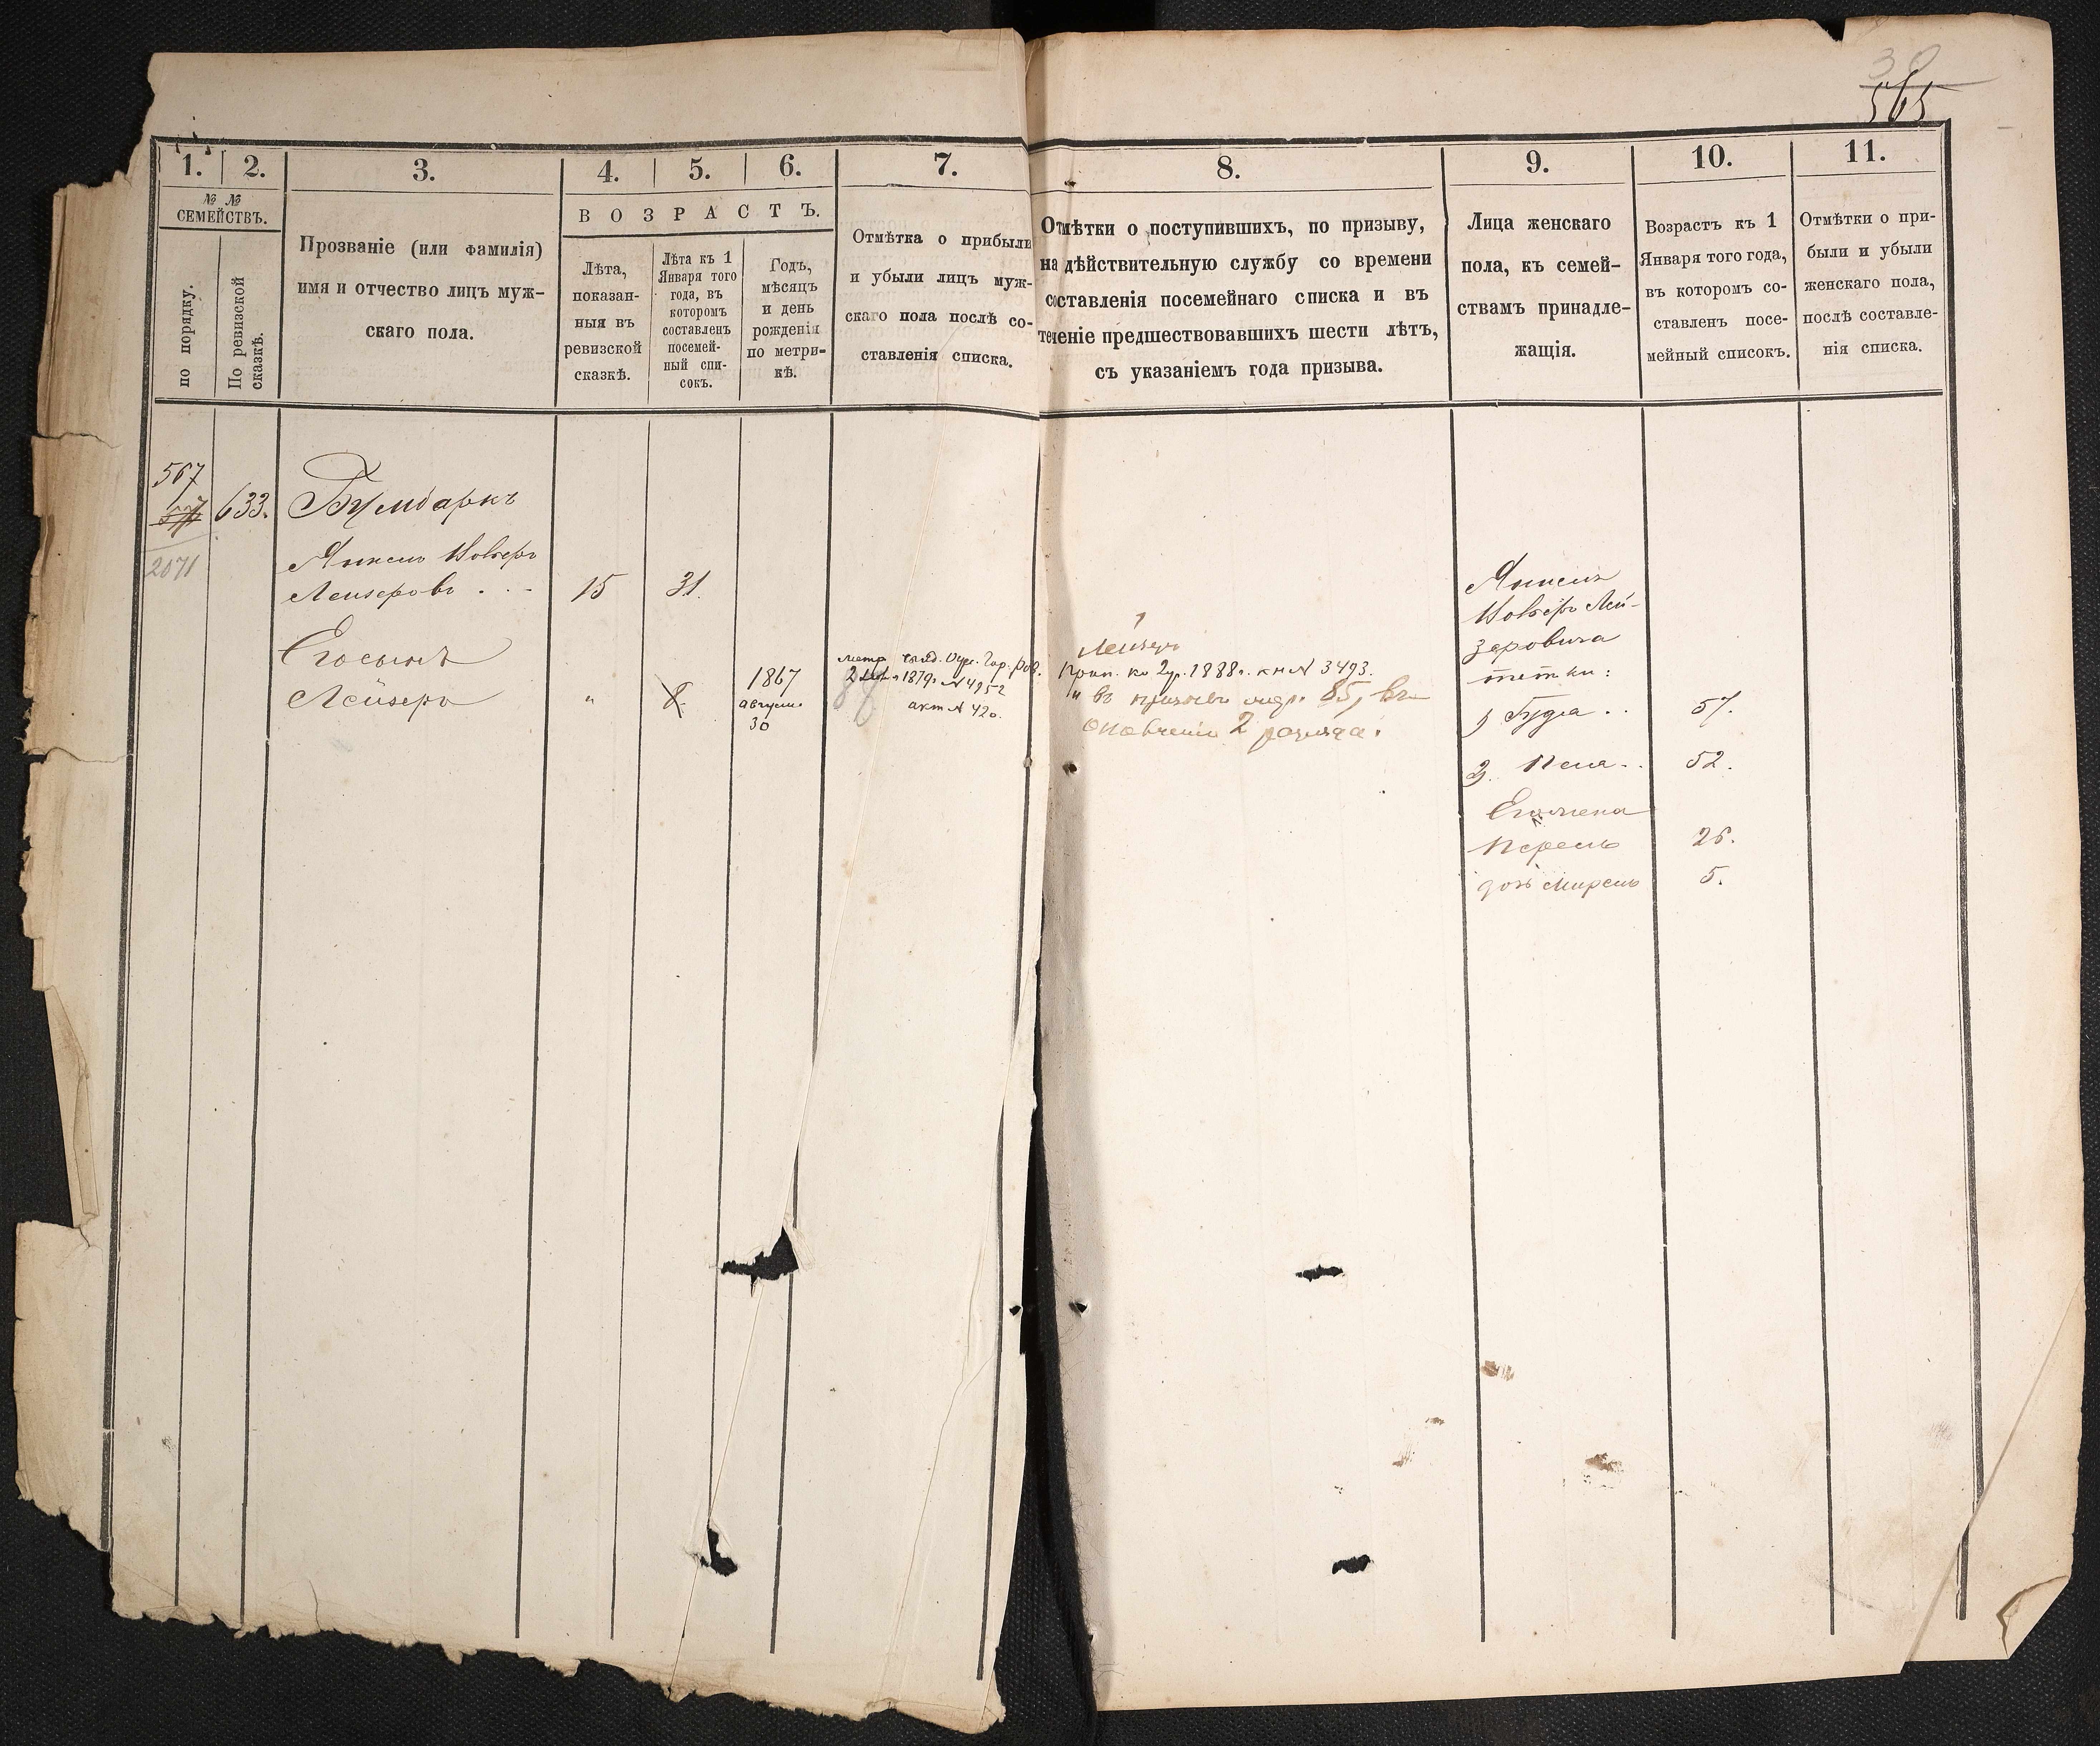 565
1. 2. 3. 4. 5. 6. 7. 8. 9. 10. 11.
№ №
СЕМЕЙСТВЪ.
по порядку.
По ревизской
сказкѣ.
Прозваніе (или фамилія)
имя и отчество лицъ муж-
скаго пола.
ВОЗРАСТЪ.
Лѣта,
показан-
ныя въ
ревизской
сказкѣ.
Лѣта къ 1
Января того
года, въ
которомъ
составленъ
посемей-
ный спи-
сокъ.
Годъ,
мѣсяцъ
и день
рожденія
по метри-
кѣ.
Отмѣтка о прибыли
и убыли лицъ муж-
скаго пола послѣ со-
ставленія списка.
Отмѣтки о поступившихъ, по призыву,
на дѣйствительную службу со времени
составленія посемейнаго списка и въ
теченіе предшествовавшихъ шести лѣтъ,
съ указаніемъ года призыва.
Лица женскаго
пола, къ семей-
ствамъ принадле-
жащія.
Возрастъ къ 1
Января того года,
въ которомъ со-
ставленъ посе-
мейный списокъ.
Отмѣтки о при-
были и убыли
женскаго пола,
послѣ составле-
нія списка.
567
633.
2071
Лейзеровъ . . . 15 31.
Его сынъ
Лейзеръ " 8.
1867
августа
30
1879 № 4952
актъ № 420.
Лейзеръ
Прип. къ 2 уч. 1888 г. кн № 3493.
85, въ
ополченіе 2 разряда.
Лей-
зеровича
тетки:
57.
52.
Его жена
Перель 26.
дочь Мирель 5.